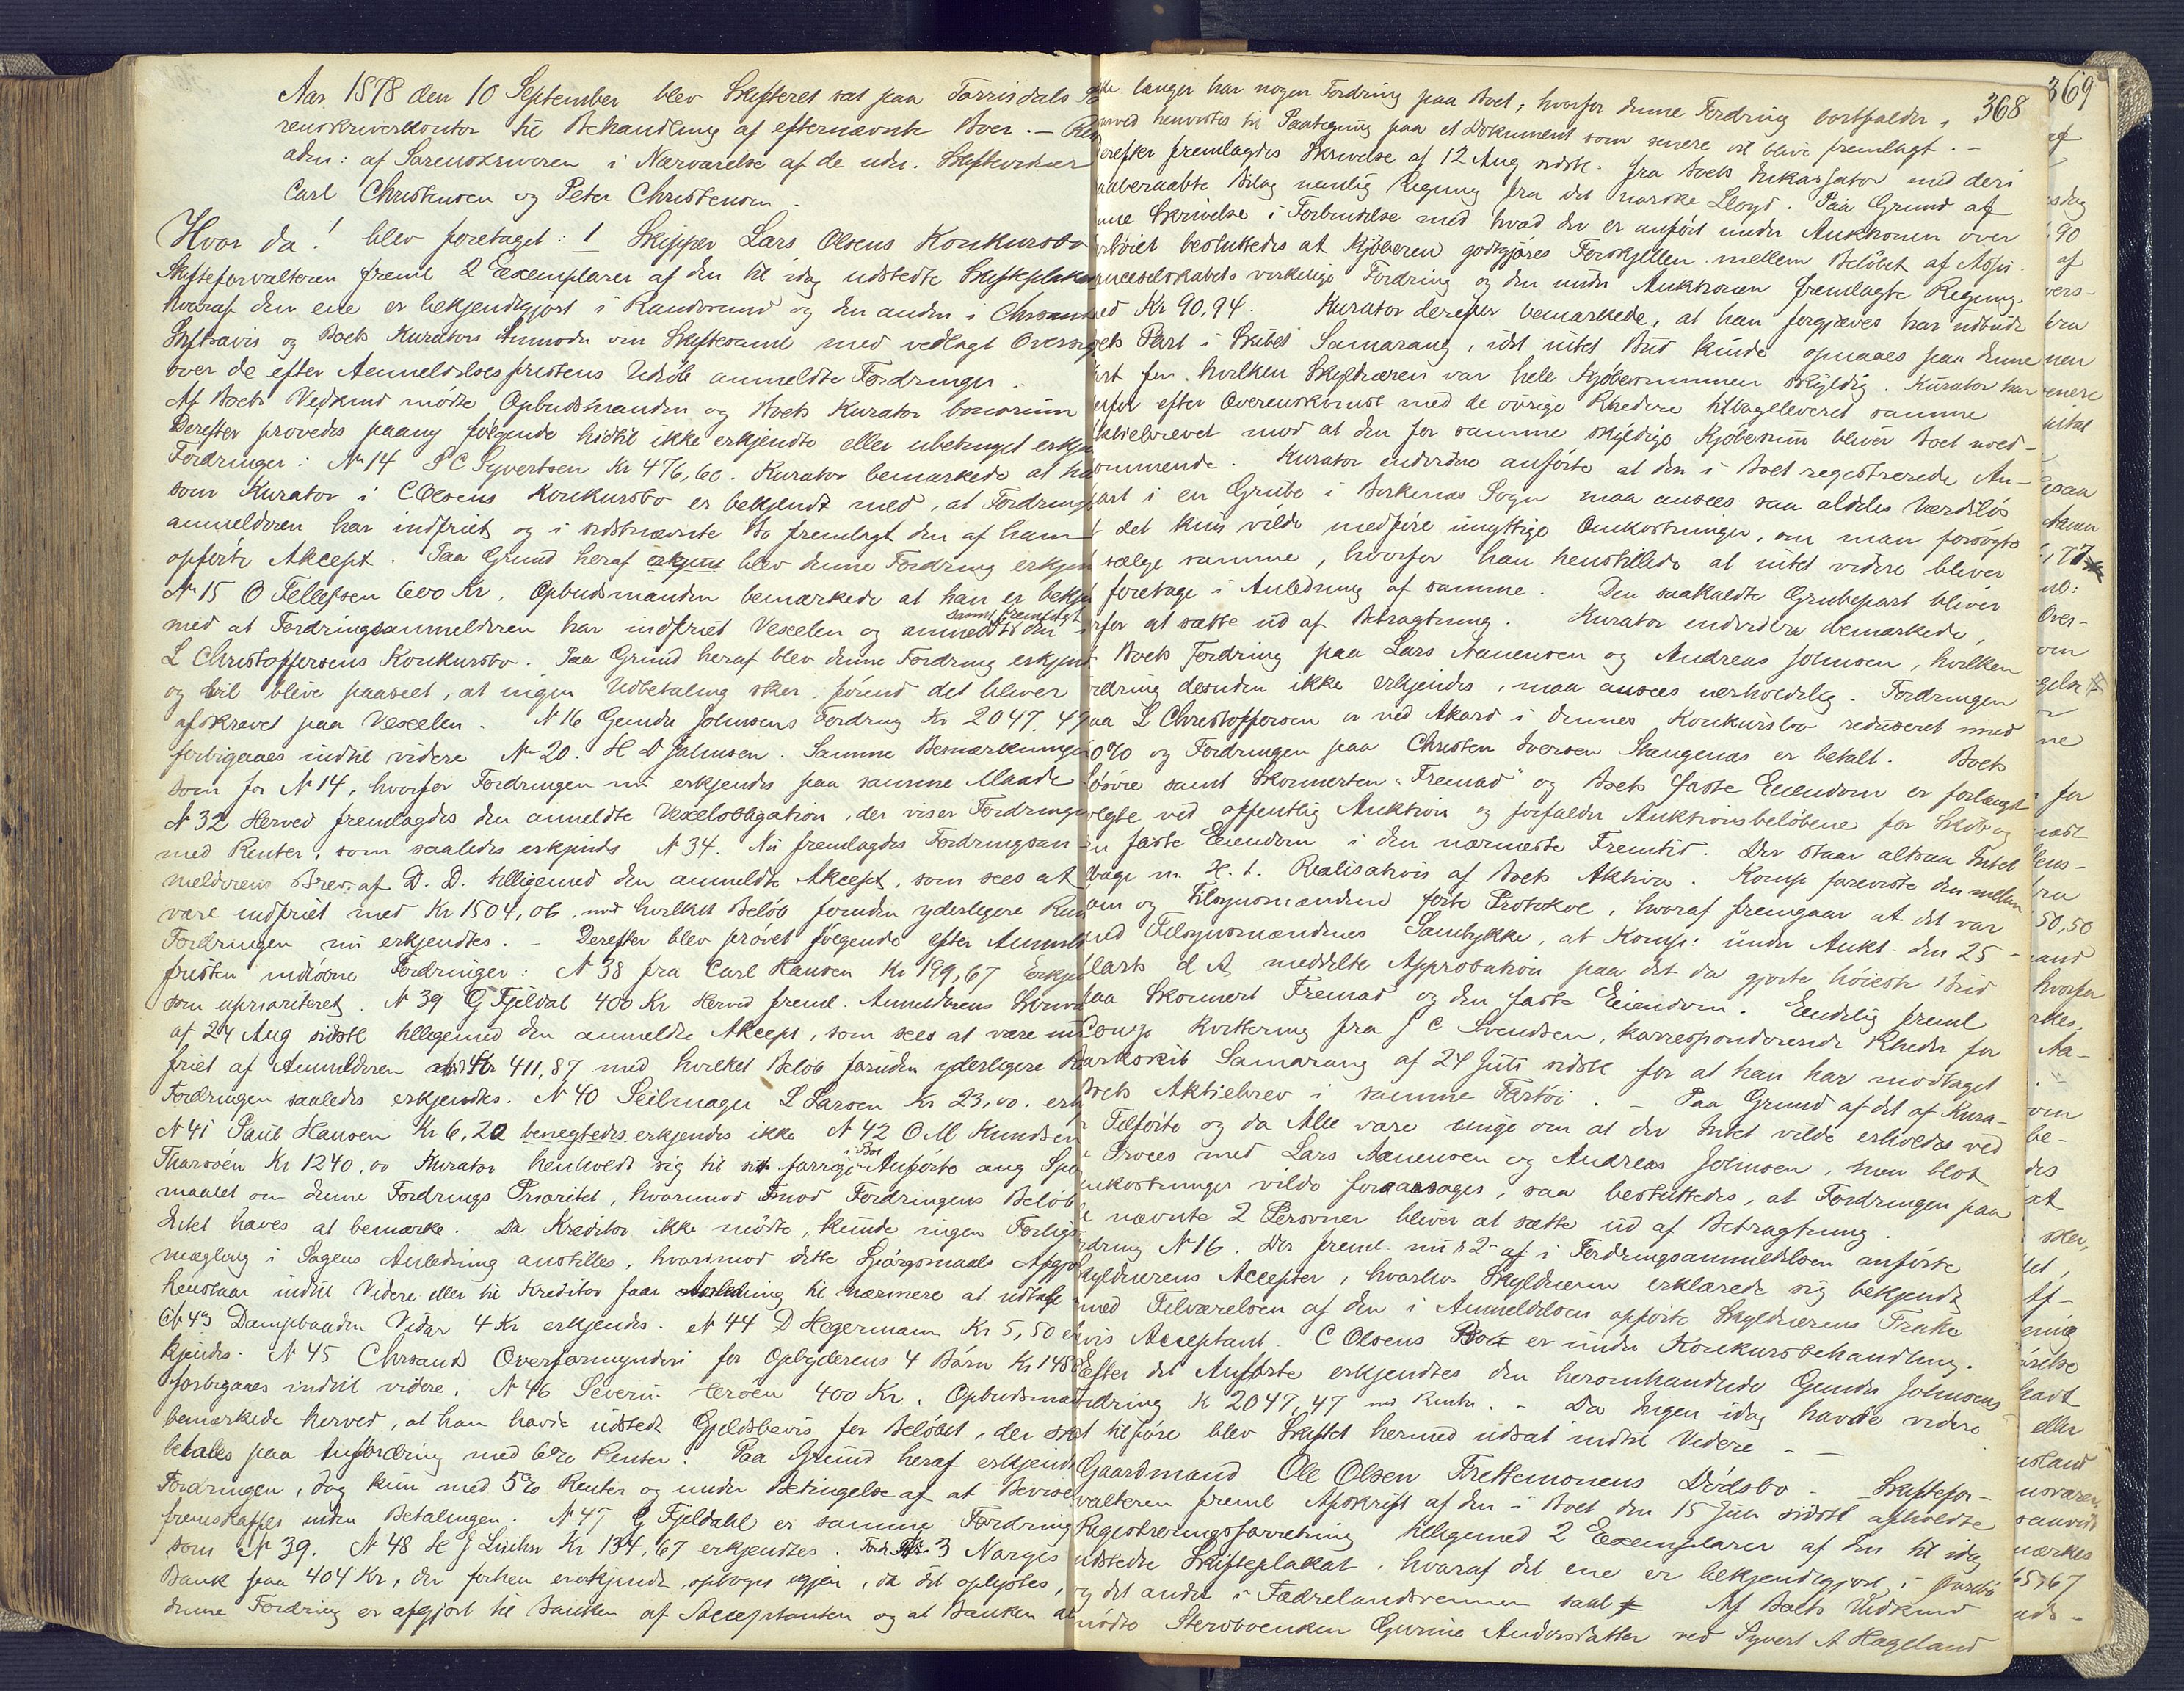 Aar 1878 den 10 September blev Skifteret sat paa Torrisdals So
renskriverkontor til Behandling af efternævnte Boer. — Ret
adm: af Sorenskriveren i Nærværelse af de udn. Skiftevidner
Carl Christensen og Peter Christensen.
Hvor da! blev foretaget: 1 Skipper Lars Olsens Konkursbo
Skifteforvalteren freml 2 Exemplarer af den til idag udstedte Skifteplakat
hvoraf den ene er bekjendtgjort i Randesund og den anden i Chrsands
Stiftsavis og Boets Kurators Anmoden om Skiftesaml med vedlagt Oversigt
over de efter Anmeldelsesfristens Udløb anmeldte Fordringer.
Af Boets Vedkmd mødte Opbudsmanden og Boets Kurator bonorum
Derefter prøvedes paany følgende hidtil ikke erkjendte eller ubetinget erkj
Fordringer: No 14 S C Syvertsen Kr 476,60. Kurator bemærkede at han
som Kurator i C Olsens Konkursbo er bekjendt med, at Fordrings
anmelderen har indfriet og i sidstnævnte Bo fremlagt den af ham
opførte Akcept. Paa Grund heraf blev denne Fordring erkjen
No 15 O Tellefsen 600 Kr. Opbudsmanden bemærkede at han er bekj
samt fremlagt
med at Fordringsanmelderen har indfriet Vexelen og anmeldt den i
L Christoffersens Konkursbo. Paa Grund heraf blev denne Fordring erkjent
og vil blive paaseet, at ingen Udbetaling sker førend det bliver
afskrevet paa Vexelen. No 16 Gunder Johnsens Fordring Kr 2047.47
forbigaaes indtil videre No 20. H D Jahnsen. Samme Bemærkninger
som for No 14, hvorfor Fordringen nu erkjendes paa samme Maade
No 32 Herved fremlagdes den anmeldte Vexelobligation, der viser Fordringen
med Renter, som saaledes erkjends No 34. Nu fremlagdes Fordringsan
melderens Brev af D. D. tilligemed den anmeldte Akcept, som sees at
være indfriet med Kr 1504,06 med hvilket Beløb foruden yderligere Ren
Fordringen nu erkjendtes. — Derefter blev prøvet følgende efter Anmeld
fristen indløbne Fordringer: No 38 fra Carl Hansen Kr 199,67 Erkj
som uprioriteret. No 39 G Fjeldal 400 Kr Herved freml. Anmelderens Skriv
af 24 Aug sidstl tilligemed den anmeldte Akcept, som sees at være ind
friet af Anmelderen med Kr 411,87 med hvilket Beløb foruden yderligere R
Fordringen saaledes erkjendtes. No 40 Seilmager L Larsen Kr 23,00. erk
No 41 Paul Hansen Kr 6,20 benegtedes, erkjendes ikke No 42 O M Knudsen
Tharsøen Kr 1240,00 Kurator henholdt sig til sit forrige i Boet Anførte ang Spø
maalet om denne Fordrings Prioritet, hvorimod mod Fordringens Beløb
Intet haves at bemærke. Da Kreditor ikke mødte, kunde ingen Forligs
mægling i Sagens Anledning anstilles, hvorimod dette Spørgsmaals Afgjør
henstaar indtil Videre eller til Kreditor faar Anledning til nærmere at udtale
No 43 Dampbaaden Vidar 4 Kr erkjendes. No 44 D Hegermann Kr 5,50 er
kjendes. No 45 Chrsands Overformynderi for Opbyderens 4 Børn Kr 1458
forbigaaes indtil videre. No 46 Severin Uerøen 400 Kr. Opbudsman
bemærkede herved, at han havde udstedt Gjeldsbevis for Beløbet, der skal
betales paa Anfordring med 6% Renter. Paa Grund heraf erkjendt
Fordringen, dog kun med 5% Renter og under Betingelse af at Beviset
fremskaffes inden Betalingen. No 47 G Fjeldahl er samme Fordring
som No 39. No 48 H J Linhn Kr 134,67 erkjendtes. Fordr No 3 Norges
Bank paa 404 Kr, der forhen er erkjendt optoges igjen, da det oplystes,
denne Fordring er afgjort til Banken af Acceptanten og at Banken al
368
ikke længer har nogen Fordring paa Boet, hvorfor denne Fordring bortfalder,
herved henvistes til Paategning paa et Dokument som senere vil blive fremlagt. —
derefter fremlagdes Skrivelse af 12 Aug sidstl. fra Boets Inkassator med deri
paaberaabte Bilag nemlig Regning fra det norske Lloyd. Paa Grund af
denne Skrivelse i Forbindelse med hvad der er anført under Auktionen over
besluttedes at Kjøberen godtgjøres Forskjellen mellem Beløbet af Assu-
ranceselskabets virkelige Fordring og den under Auktionen fremlagte Regning
med Kr 90,94. Kurator derefter bemærkede, at han forgjæves har udbudt
Boets Part i Skibet Samarang, idet intet Bud kunde opnaaes paa denne
Part for hvilken Skyldneren var hele Kjøbesummen skyldig. Kurator har
derfor efter Overenskomst med de øvrige Rhedere tilbageleveret samme
Aktiebrevet mod at den for samme skyldige Kjøbesum bliver Boet uved-
kommende. Kurator endvidere anførte at den i Boet registrerede An-
part i en Grube i Birkenæs Sogn maa ansees saa aldeles værdiløs
at det kun vilde medføre unyttige Omkostninger, om man forsøgte
sælge samme, hvorfor han henstillede at intet videre bliver
foretage i Anledning af samme. Den saakaldte Grubepart bliver
derfor at sætte ud af Betragtning. Kurator endvidere bemærkede,
Boets Fordring paa Lars Aanensen og Andreas Johnsen, hvilken
Fordring desuden ikke erkjendes, maa ansees uerholdelig. Fordringen
paa L Christoffersen er ved Akord i dennes Konkursbo reduseret med
0% og Fordringen paa Christen Iversen Stangenæs er betalt. Boets
Løsøre samt Skonnerten "Fremad" og Boets faste Eiendom er forlængst
solgte ved offentlig Auktion og forfalder Auktionsbeløbene for Skib og
den faste Eiendom i den nærmeste Fremtid. Der staar altsaa Intet
tilbage m. H. t. Realisation af Boets Aktiva. Komp foreviste den mellem
ham og Tilsynsmændene førte Protokol, hvoraf fremgaar at det var
med Tilsynsmændenes Samtykke, at Komp: under Aukt. den 25 -
Marts d A, meddelte Approbation paa det da gjorte høieste Bud
paa Skonnert Fremad og den faste Eiendom. Endelig freml
Comp Kvittering fra J C Svendsen, korresponderende Rheder for
Barkskib Samarang af 24 Juli sidstl for at han har modtaget
Boets Aktiebrev i samme Fartøi. — Paa Grund af det af Kura-
tor Tilførte og da Alle vare enige om at der Intet vilde erholdes ved
Proces med Lars Aanensen og Andreas Johnsen, men blot
Omkostninger vilde foraarsages, saa besluttedes, at Fordringen paa
de nævnte 2 Personer bliver at sætte ud af Betragtning.
Fordring No 16. Der freml. nu 2 af i Fordringsanmeldelsen anførte
Skyldnerens Accepter, hvorhos Skyldneren erklærede sig bekjendt
med Tilværelsen af den i Anmeldelsen opførte Skyldnerens Tratte
Acceptant C Olsens Bo er under Konkursbehandling.
Efter det Anførte erkjendtes den heromhandlede Gunder Johnsens
Fordring K 2047,47 med Renter. - Da Ingen idag havde videre
at tilføre blev Skiftet hermed udsat indtil Videre — —
Gaardmand Ole Olsen Trettemonens Dødsbo - Skiftefor-
valteren freml Afskrift af den i Boet den 15 Juli sidstl afholdte
Registreringsforretning tilligemed 2 Exemplarer af den til idag
udstedte Skifteplakat, hvoraf det ene er bekjendtgjort i
og det andet i Fædrelandsvennen Af Boets Vedkmd
mødte Stervboenken Gurine Andersdatter ved Syvert A Hageland
369